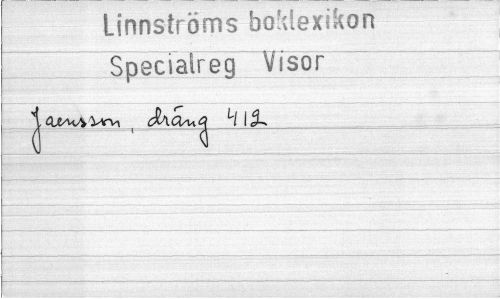 Linnströms boklexikon
Specialreg Visor
Jaensson, dräng 412